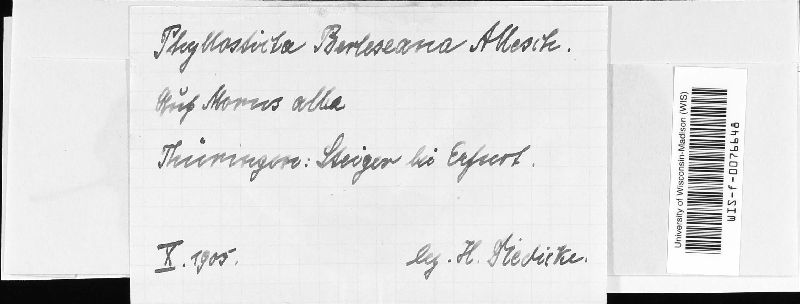 Phyllosticta Berleseana Allesch.
Auf Morus alba
Thüringen: Steiger bei Erfurt.
X. 1905.
leg. H. Diedicke.
University of Wisconsin-Madison (WIS)
WIS-f-0076648